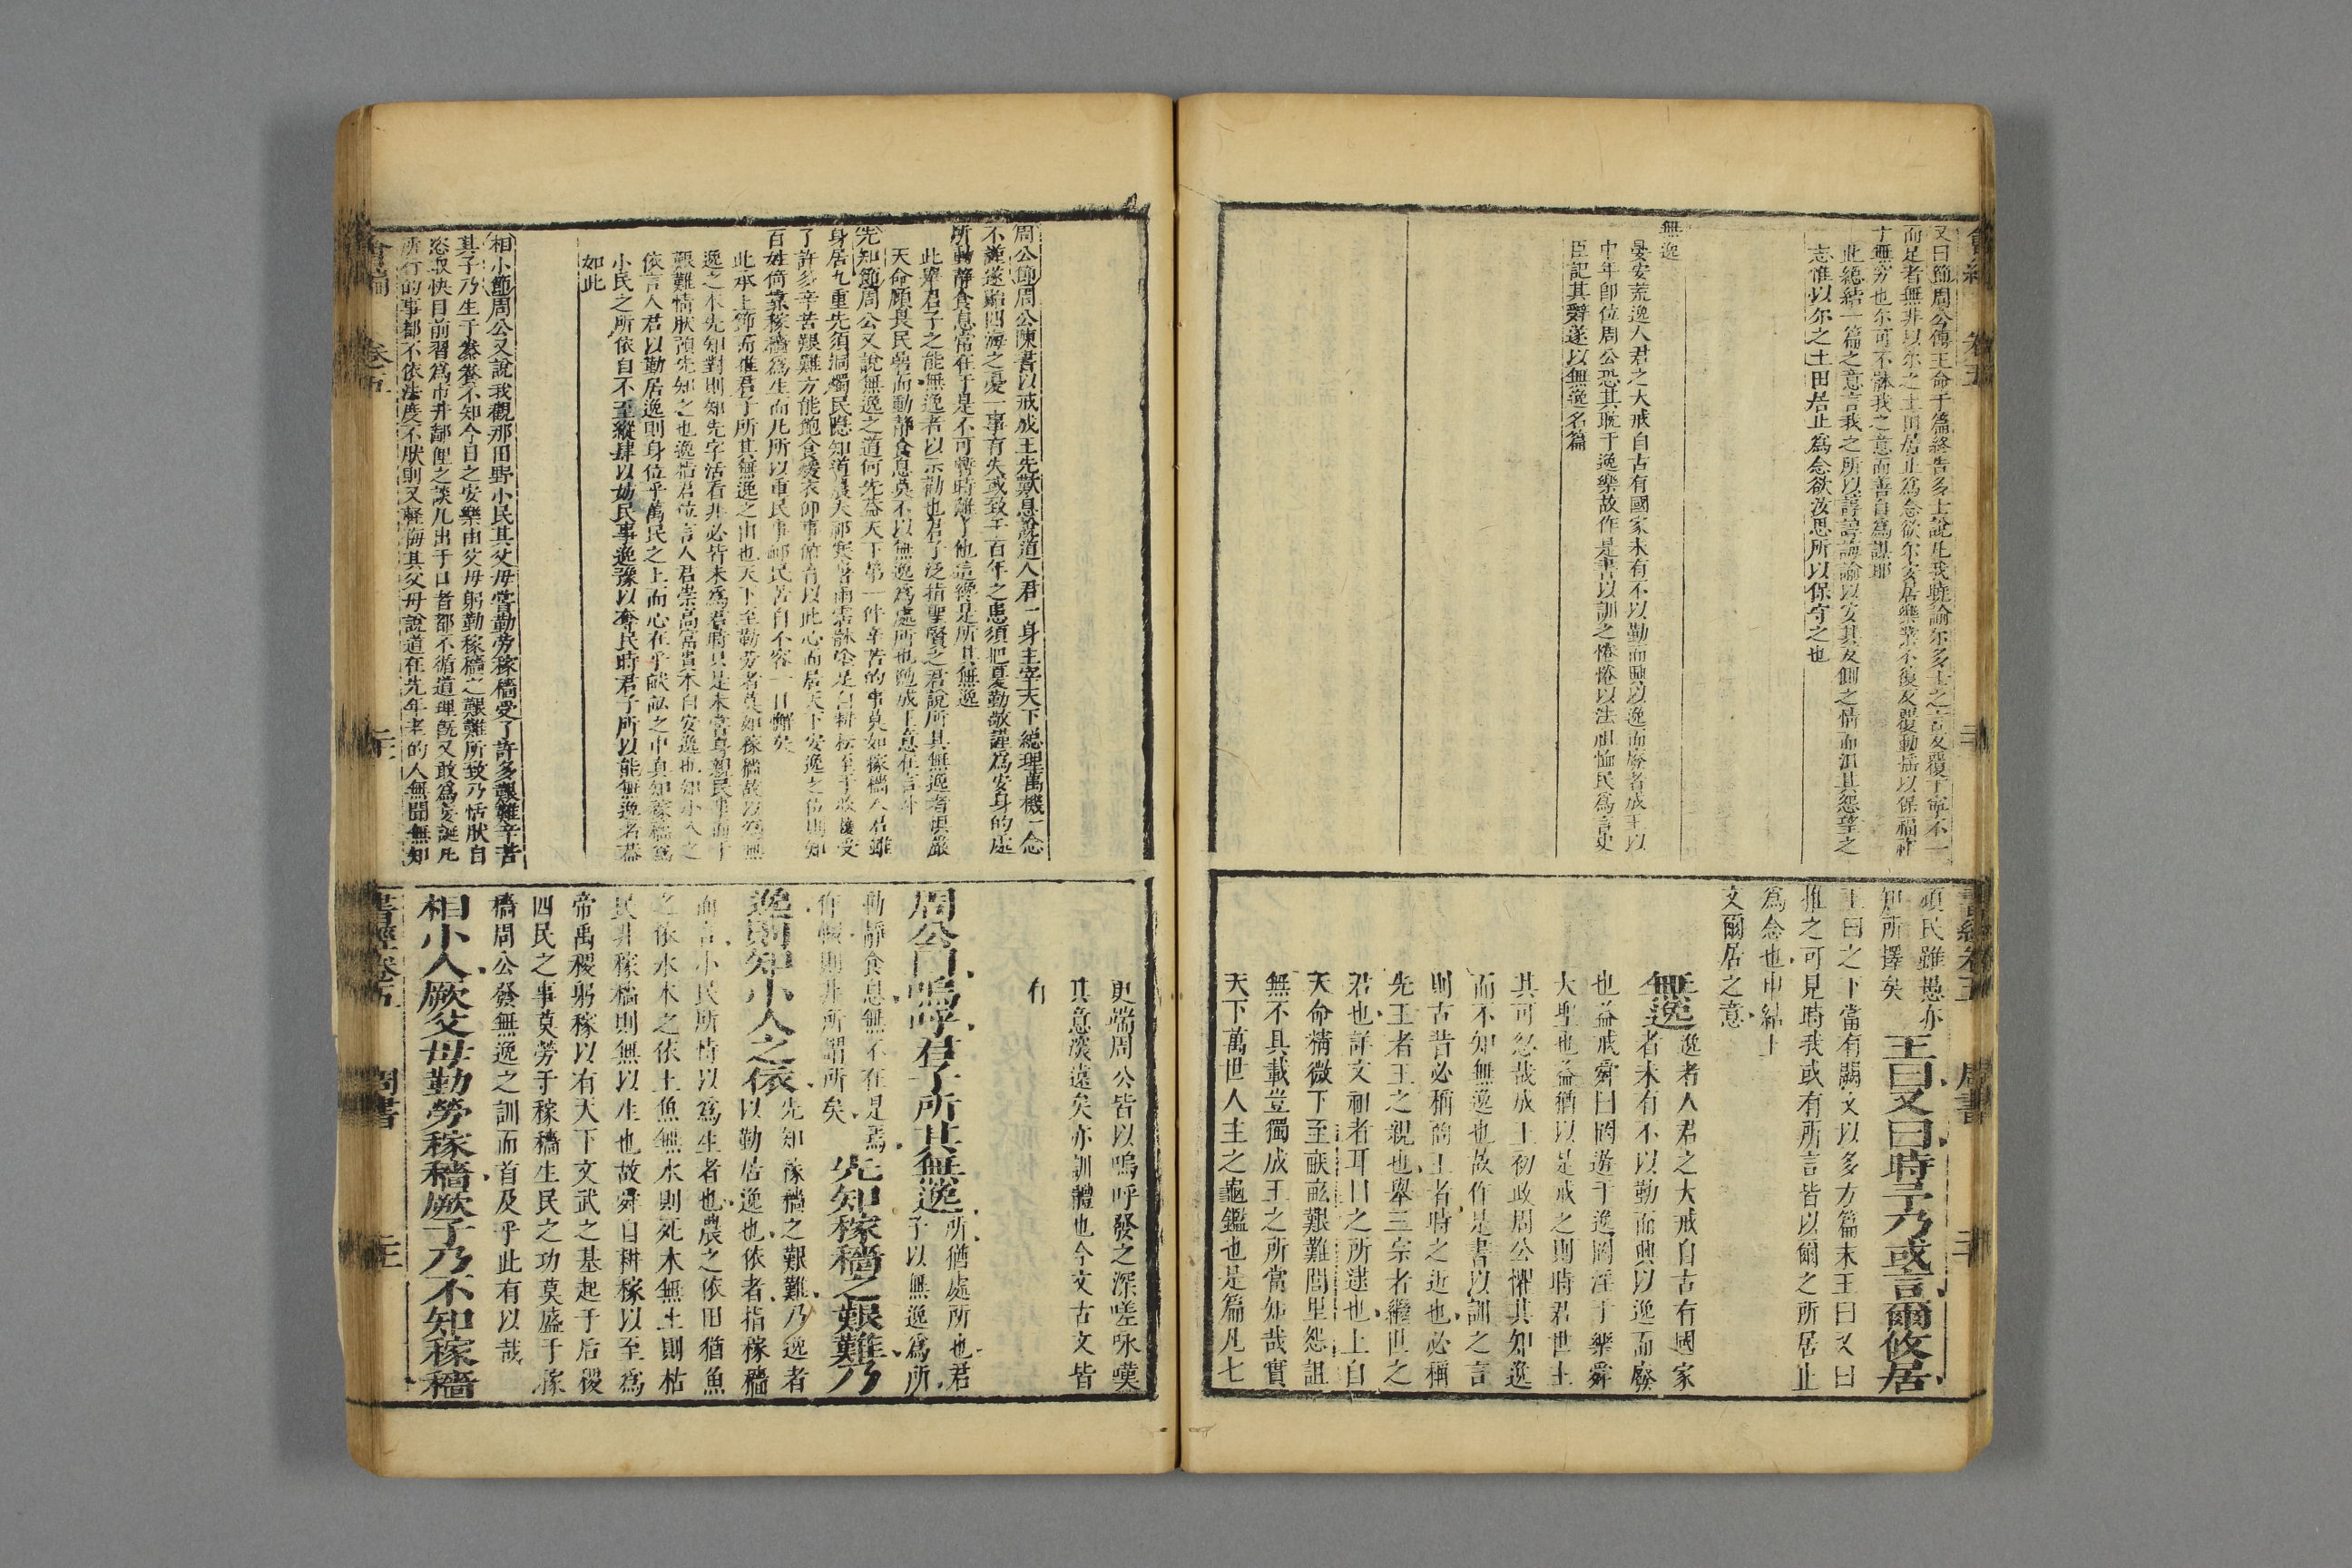 又曰節周公傳王命于篇終告多士說凡我所論尔多士之言反覆丁寧不一
而足者無非以尔之土田居止為念欲尔安居樂業不復反覆動搖以保福祚
于無窮也尔可不躰我之意而善自為謀耶
此總結一篇之意言我之所以諄諄誨諭以安其反側之情而沮其怨望之
志惟以尔之土田居止為念欲汝思所以保守之也
無逸
晏安荒逸人君之大戒自古有國家未有不以勤而興以逸而廢者成王以
中年即位周公恐其耽于逸樂故作是書以訓之惓惓以法祖恤民為言史
臣記其辭遂以無逸名篇
頑民雖愚亦
知所擇矣
王曰又曰時予乃或言爾攸居
王曰之下當有闕文以多方篇末王曰又曰
推之可見時我或有所言皆以爾之所居止
為念也申結上
文爾居之意
無逸
逸者人君之大戒自古有國家
者未有不以勤而興以逸而廢
也益戒舜曰罔遊于逸罔淫于樂舜
大聖也益猶以是戒之則時君世主
其可忽哉成王初政周公懼其知逸
而不知無逸也故作是書以訓之言
則古昔必稱商王者時之近也必稱
先王者王之親也舉三宗者繼世之
君也詳文祖者耳目之所逮也上自
天命精微下至畎畝艱難閭里怨詛
無不具載豈獨成王之所當知哉實
天下萬世人主之龜鑑也是篇凡七
周公節周公陳書以戒成王先歎息說道人君一身主宰天下總理萬機一念
不謹遂貽四海之憂一事有失或致千百年之患須把憂勤敬謹為安身的處
所動靜食息常在于是不可暫時離了他這纔是所其無逸
此舉君子之能無逸者以示勸也君子泛指聖賢之君說所其無逸者俱嚴
天命顧畏民碞而動靜食息莫不以無逸為處所也勉成王意在言外
先知節周公又說無逸之道何先蓋天下第一件辛苦的事莫如稼穡人君雖
身居九重先須洞燭民隱知道農夫祁寒暑雨霑體塗足自耕耘至于收穫受
了許多辛苦艱難方能飽食煖衣仰事俯育以此心而居天下安逸之位則知
百姓倚靠稼穡為生而凡所以重民事卹民苦自不容一日懈矣
此承上節而推君子所其無逸之由也天下至勤勞者莫如稼穡故以為無
逸之本先知對則知先字活看非必皆未為君時只是未嘗身親民事而于
艱難情狀預先知之也逸指君位言人君崇高富貴本自安逸也知小人之
依言人君以勤居逸則身位乎萬民之上而心在乎畎畝之中真知稼穡為
小民之所依自不至縱肆以妨民事逸豫以奪民時君子所以能無逸者蓋
如此
相小節周公又說我觀那田野小民其父母嘗勤勞稼穡受了許多艱難辛苦
其子乃生于豢養不知今日之安樂由父母躬勤稼穡之艱難所致乃恬肰自
恣取快目前習為市井鄙俚之談凡出于口者都不循道理既又敢為妄誕凡
所行的事都不依法度不肰則又輕侮其父母說道在先年老的人無聞無知
更端周公皆以嗚呼發之深嗟咏嘆
其意深遠矣亦訓體也今文古文皆
有
周公曰嗚呼君子所其無逸
所猶處所也君
子以無逸為所
動靜食息無不在是焉
作輟則非所謂所矣
先知稼穡之艱難乃
逸則知小人之依
先知稼穡之艱難乃逸者
以勤居逸也依者指稼穡
而言小民所恃以為生者也農之依田猶魚
之依水木之依土魚無水則死木無土則枯
民非稼穡則無以生也故舜自耕稼以至為
帝禹稷躬稼以有天下文武之基起于后稷
四民之事莫勞于稼穡生民之功莫盛于稼
穡周公發無逸之訓而首及乎此有以哉
相小人厥父母勤勞稼穡厥子乃不知稼穡